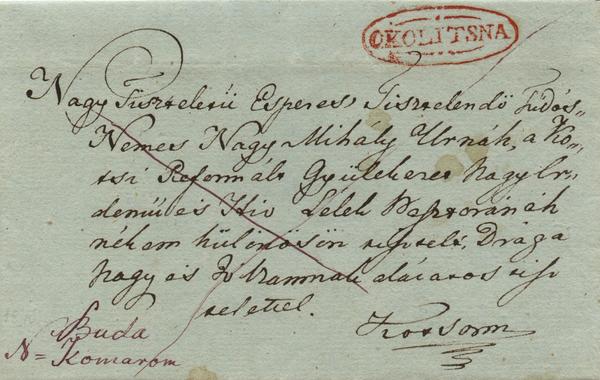 OKOLITSNA
Nagy Tiszteletü Esperes Tisztelendö Tudós
Nemes Nagy Mihaly Urnák, a Ko-
tsi Reformált Gyülekezet nagy Ér-
demü és Hiv Lélek Pasztorának
nékem különösön tisztelt, Drága
nagy és Uramnak alázatos tisz
telettel.
Buda
N= Komarom